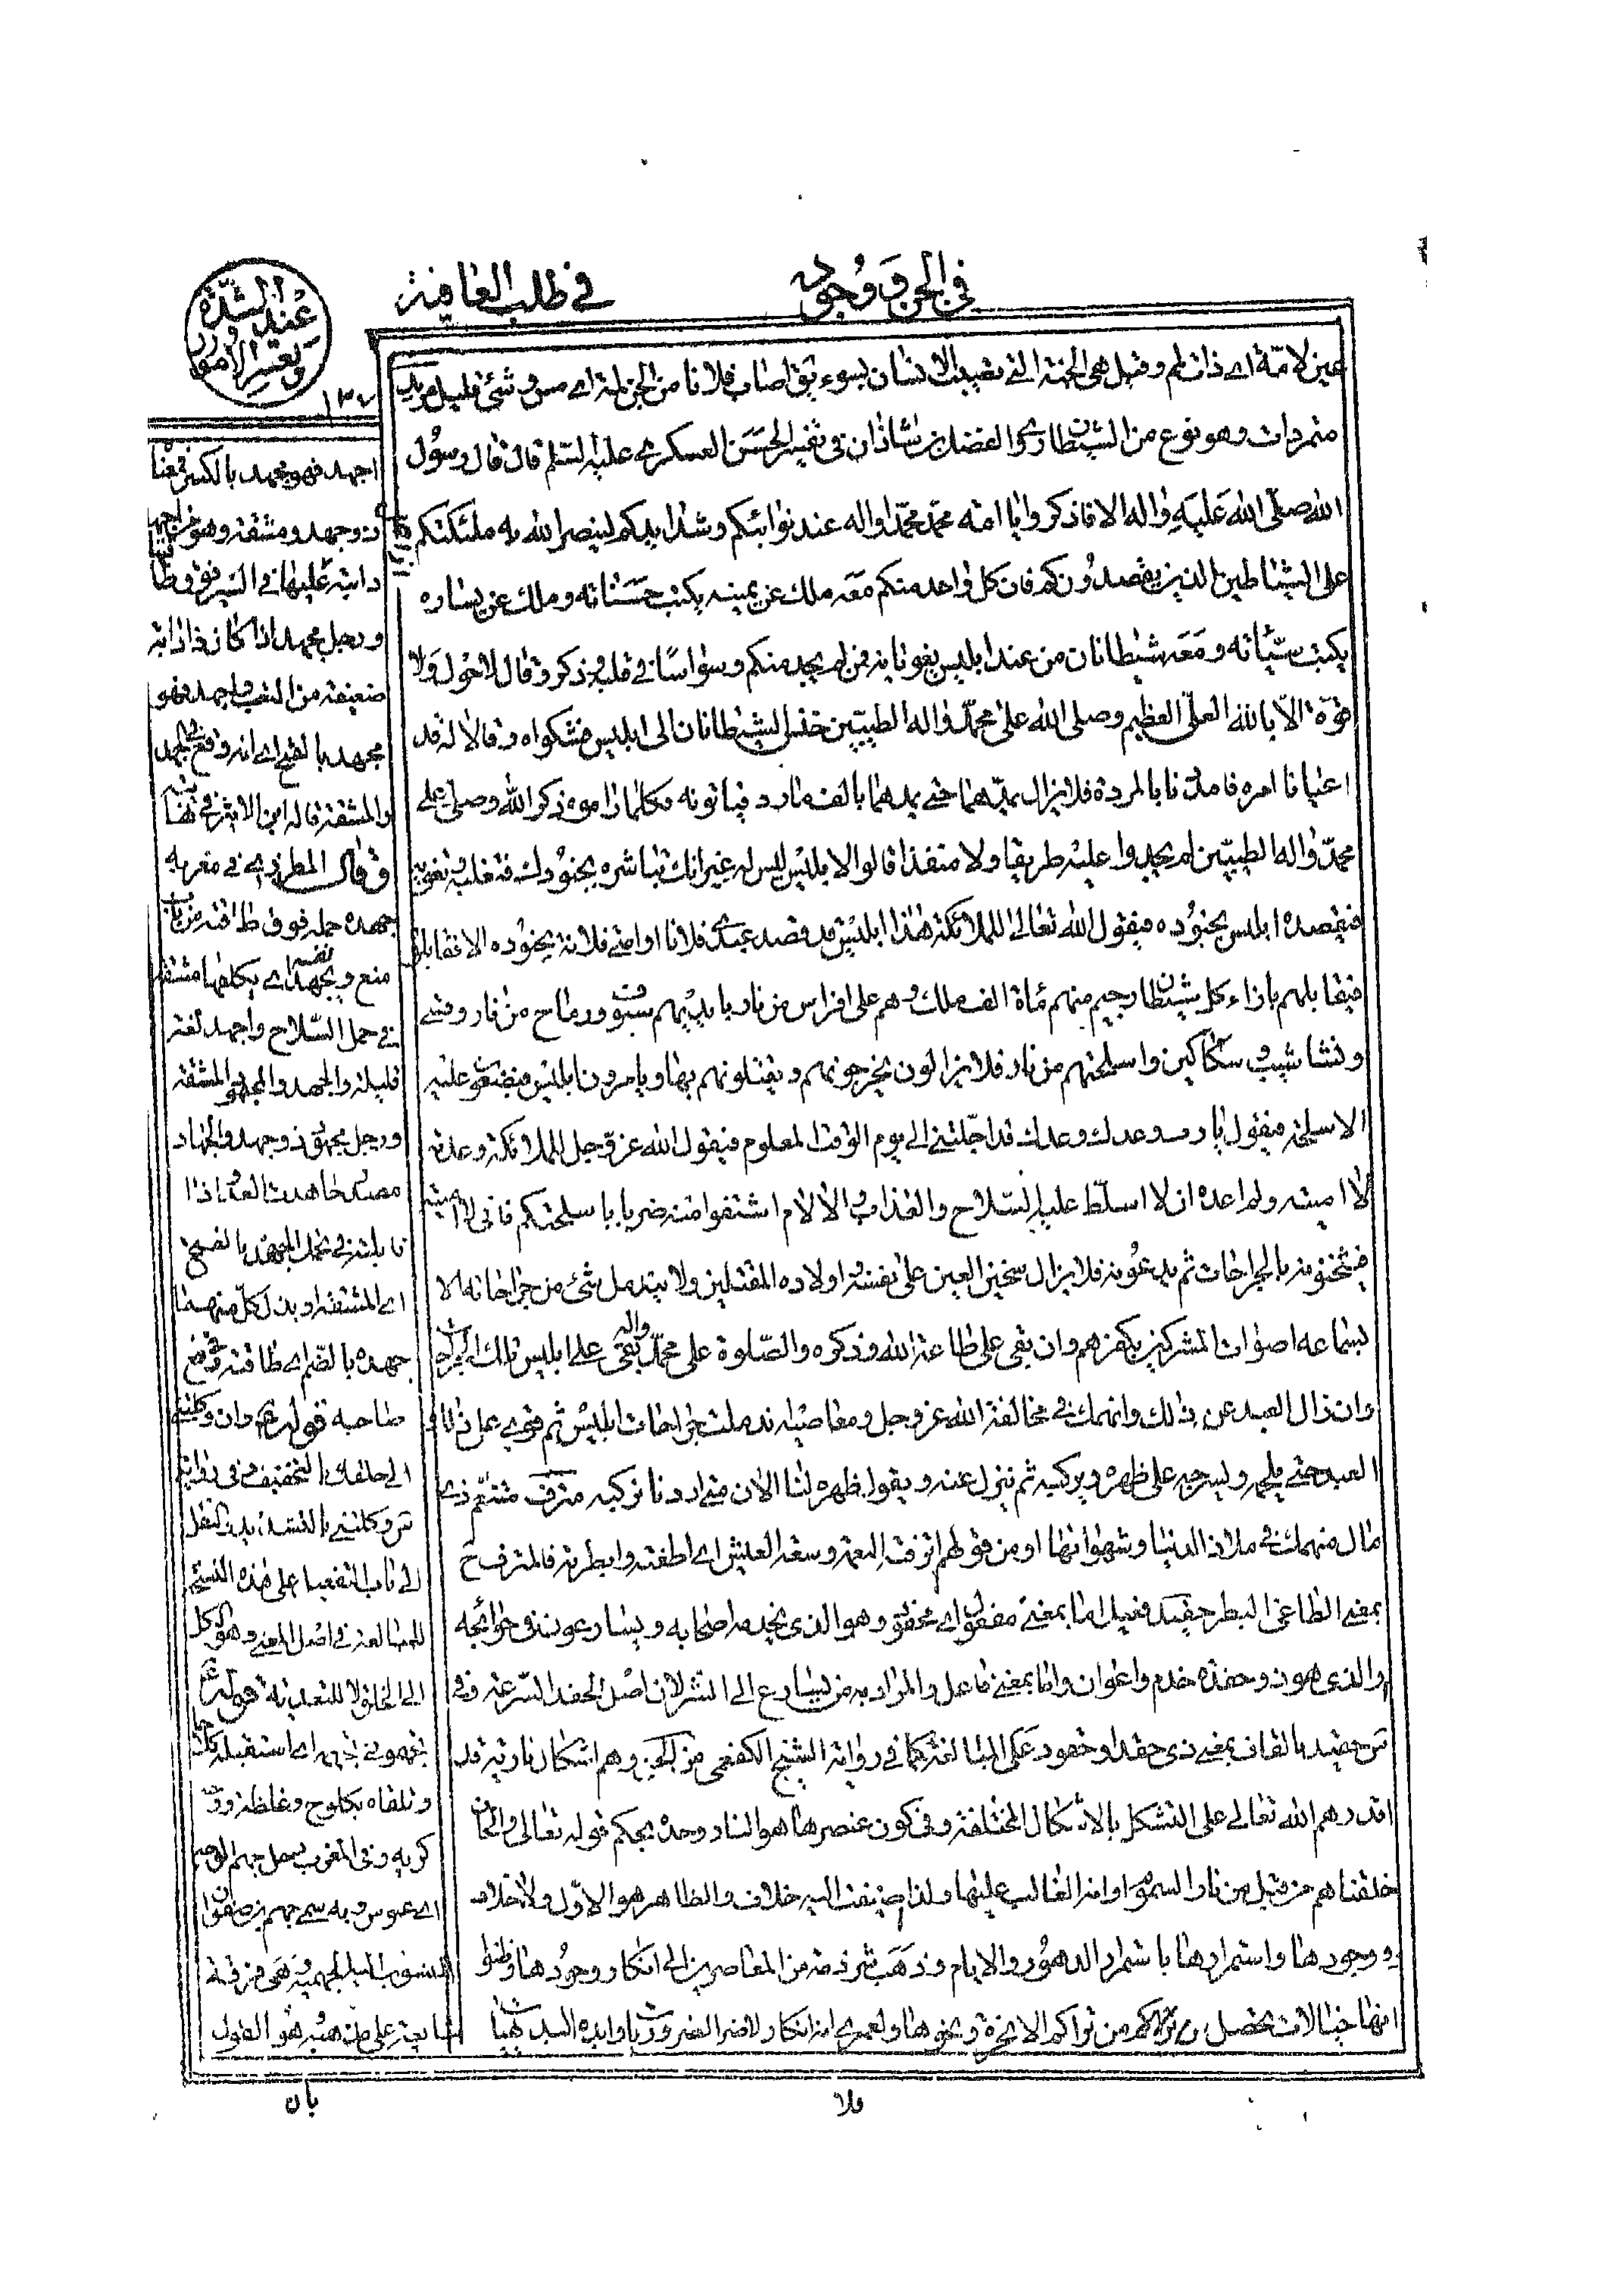 في الجن ووجوده
في طلب العافية
عند الشدة وتعسر الأمور
١٣٧
عين لامّة اي ذات لمم وقيل هي الجنة التي تصيب الانسان بسوء يق اصاب فلانا من الجن لمة اي مس وشئ قليل
متمردات وهو نوع من الشيطان روى الفضل بن شاذان في تفسير الحسن العسكري عليه السلم قال قال رسول
الله صلى الله عليه واله الا فاذكروا يا امة محمد محمدا واله عند نوائبكم وشدايدكم لينصر الله به ملئكتكم
على الشياطين الذين يقصدونكم فان كل واحد منكم معه ملك عن يمينه يكتب حسناته وملك عن يساره
يكتب سيئاته ومعه شيطانان من عند ابليس يغويانه فمن يجد منكم وسواسا في قلبه وذكر وقال لا حول ولا
قوة الا بالله العلي العظيم وصلى الله على محمد واله الطيبين خنس الشيطانان الى ابليس فشكواه وقالا له قد
اعيانا امره فامدنا بالمردة فلا يزال يمدهما حتى يمدهما بالف مارد فياتونه فكلما راموه ذكر الله وصلى على
محمد واله الطيبين لم يجدوا عليه طريقا ولا منفذا قالوا لابليس ليس له غير انك تباشره بجنودك فتغلبه وتغويه
فيقصده ابليس بجنوده فيقول الله تعالى للملائكة هذا ابليس قد قصد عبدي فلانا او امتي فلانة بجنوده الا فقابلوه
فيقابلهم بازاء كل شيطان رجيم منهم مأة الف ملك وهم على افراس من نار بايديهم سيوف ورماح من نار وقسي
ونشاشيب وسكاكين واسلحتهم من نار فلا يزالون يخرجونهم ويقتلونهم بها وياسرون ابليس فيضعون عليه
الاسلحة فيقول يا رب وعدك وعدك قد اجلتني الى يوم الوقت المعلوم فيقول الله عز وجل للملائكة وعدته
لا اميته ولم اعده ان لا اسلط عليه السلاح والعذاب والالام اشتفوا منه ضربا باسلحتكم فاني لا اميته
فيثخنونه بالجراحات ثم يدعونه فلا يزال سخين العين على نفسه واولاده المقتلين ولا يندمل شئ من جراحاته الا
بسماعه اصوات المشركين بكفرهم وان بقى على طاعة الله وذكره والصلوة على محمد واله بقى على ابليس تلك الجراحات
وان زال العبد عن ذلك وانهمك في مخالفة الله عز وجل ومعاصيه اندملت جراحات ابليس ثم قوي على ذلك
العبد حتى يلجمه ويسرجه على ظهره ويركبه ثم ينزل عنه ويقول ظهره لنا الان متى اردنا نركبه مترف متنعم ذي
مال منهمك في ملاذ الدنيا وشهواتها او من قولهم اترفته النعمة وسعة العيش اي اطغته وابطرته فالمترف ح
بمعنى الطاغي البطر حفيد فعيل اما بمعنى مفعول اي محفود وهو الذي يخدمه اصحابه ويسارعون في حوائجه
والذي هو ذو حفدة خدم واعوان واما بمعنى فاعل والمراد به من يسارع الى الشر لان اصل الحفد السرعة وفي
س حقيد بالقاف بمعنى ذي حقد او حقود على المبالغة كما في رواية الشيخ الكفعمي من الجن وهم اشكال نارية قد
اقدرهم الله تعالى على التشكل بالاشكال المختلفة وفي كون عنصرها هو النار وحده بحكم قوله تعالى والجان
خلقناهم من قبل من نار السموم او انه الغالب عليها ولذا ضيفت اليه خلاف والظاهر هو الاول ولا خلاف
ووجودها واستمرارها باستمرار الدهور والايام وذهب شرذمة من المعاصرين الى انكار وجودها وظنوا
انها خيالات تحصل من تراكم الابخرة ونحوها ولعمري انه انكار
اجهد فهو مجهد بالكسر فمعناه
ذو جهد ومشقة وهو من اجهد
دابته عليها في السير فوق طاقتها
ورجل مجهد اذا كان ذا دابة
ضعيفة من التعب واجهد فهو
مجهد بالفتح اي انه وقع في الجهد
والمشقة قاله ابن الاثير في نهايته
وقال المطرزي في مغربه
جهده حمله فوق طاقته من باب
منع ويجهد نفسه اي يكلفها مشقة
في حمل السلاح واجهد لغة
قليلة والجهد والمجهود المشقة
ورجل مجهود ذو جهد والجهاد
مصدر جاهدت العدو اذا
قابلته في تحمل الجهد بالفتح
اي المشقة او بذل كل منهما
جهده بالضم اي طاقته في دفع
صاحبه قوله ع وان وكلتني
الى خلقك بالتخفيف وفي رواية
س وكلتني بالتشديد بالنقل
الى باب التفعيل على هذه النسخة
للمبالغة في اصل المعنى وهو الوكل
الى الخلق لا للتعدية قوله ع
تجهموني اي استقبله
وتلقاه بكلوح وغلظة ووجه
كريه وفي المغرب رجل جهم الوجه
اي عبوس وبه سمي جهم بن صفوان
المنسوب اليه الجهمية وهي فرقة
شايعته على مذهبه هو القول
فلا
بان